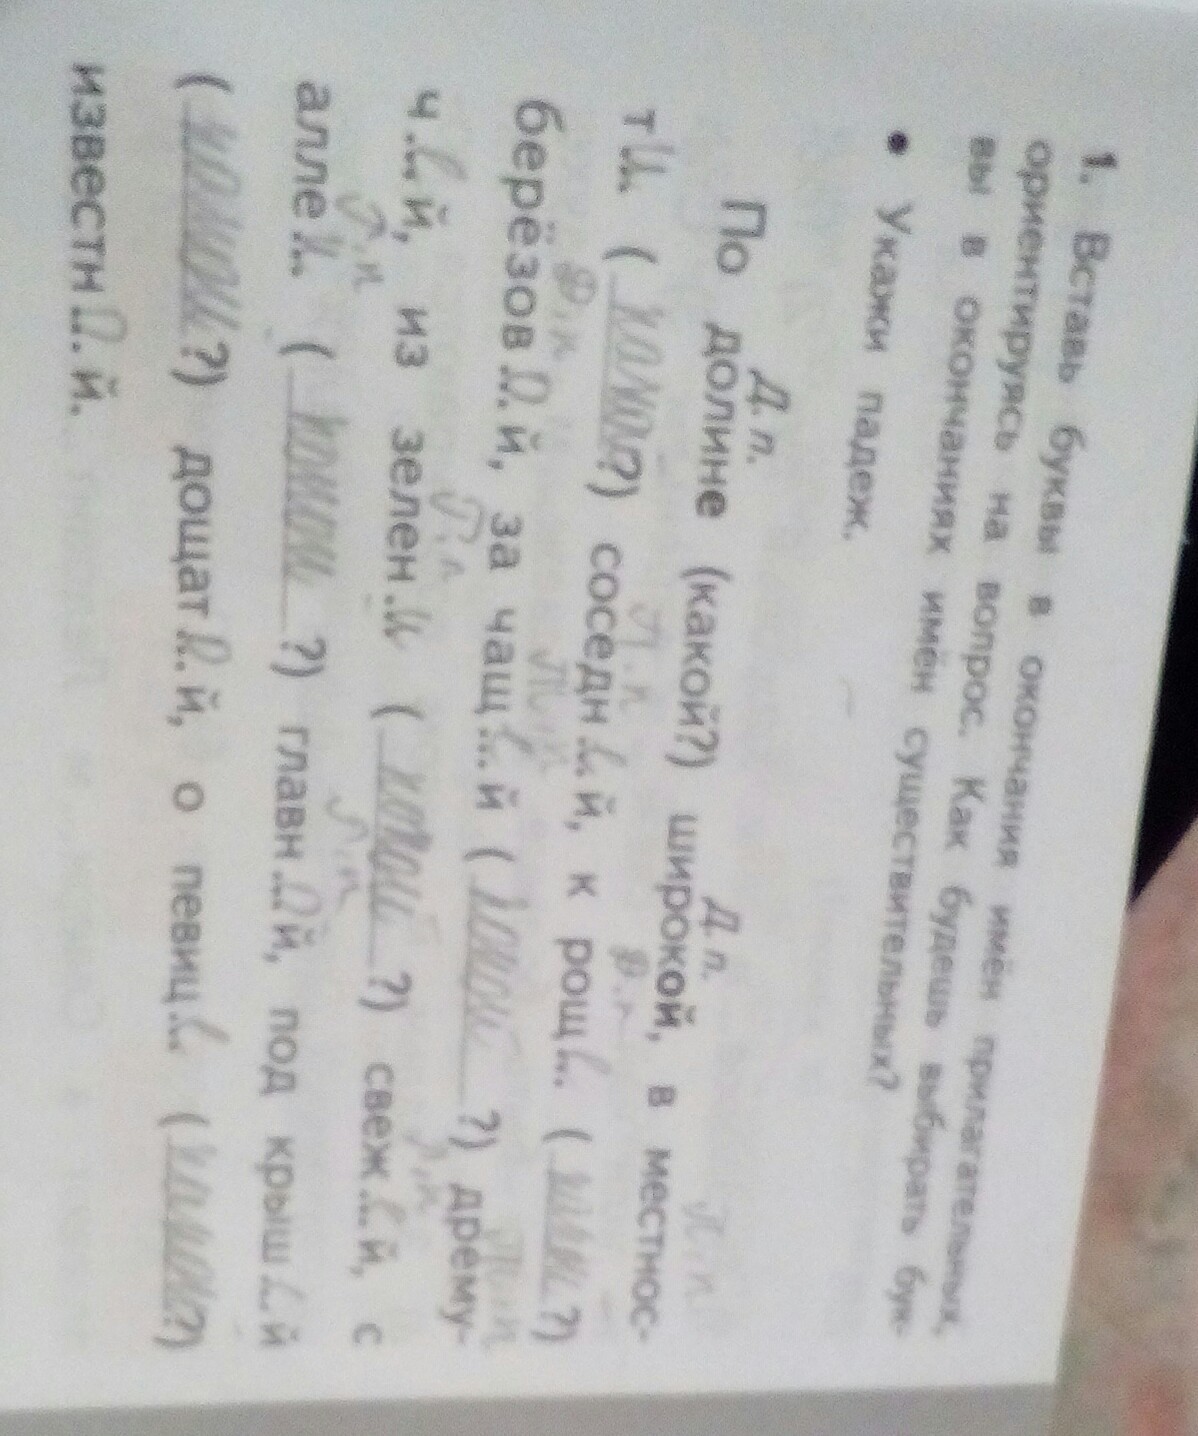 1. Вставь буквы в окончания имён прилагательных,
ориентируясь на вопрос. Как будешь выбирать бук-
вы в окончаниях имён существительных?
• Укажи падеж.
Д.п. Д.п. П.п
По долине (какой?) широкой, в местнос-
П.п Д.п
ти (какой?) соседней, к роще (какой?)
Д.п Т.п Т.п
берёзовой, за чащей (какой?) дрему-
Р.п Р.п
чей, из зелени (какой?) свежей, с
Р.п Р.п
аллеи (какой?) главной, под крышей
(какой?) дощатой, о певице (какой?)
известной.